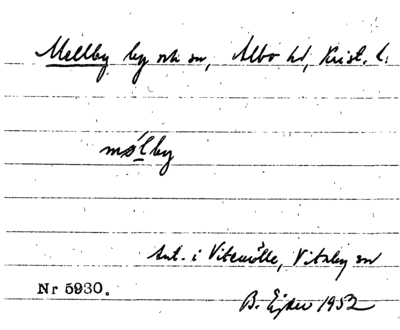 Mellby by och sn, Albo hd, Krist. l.
mø̀lby
Ant. i Vitemölle, Vitaby sn
Nr 5930.
B. Ejder 1952